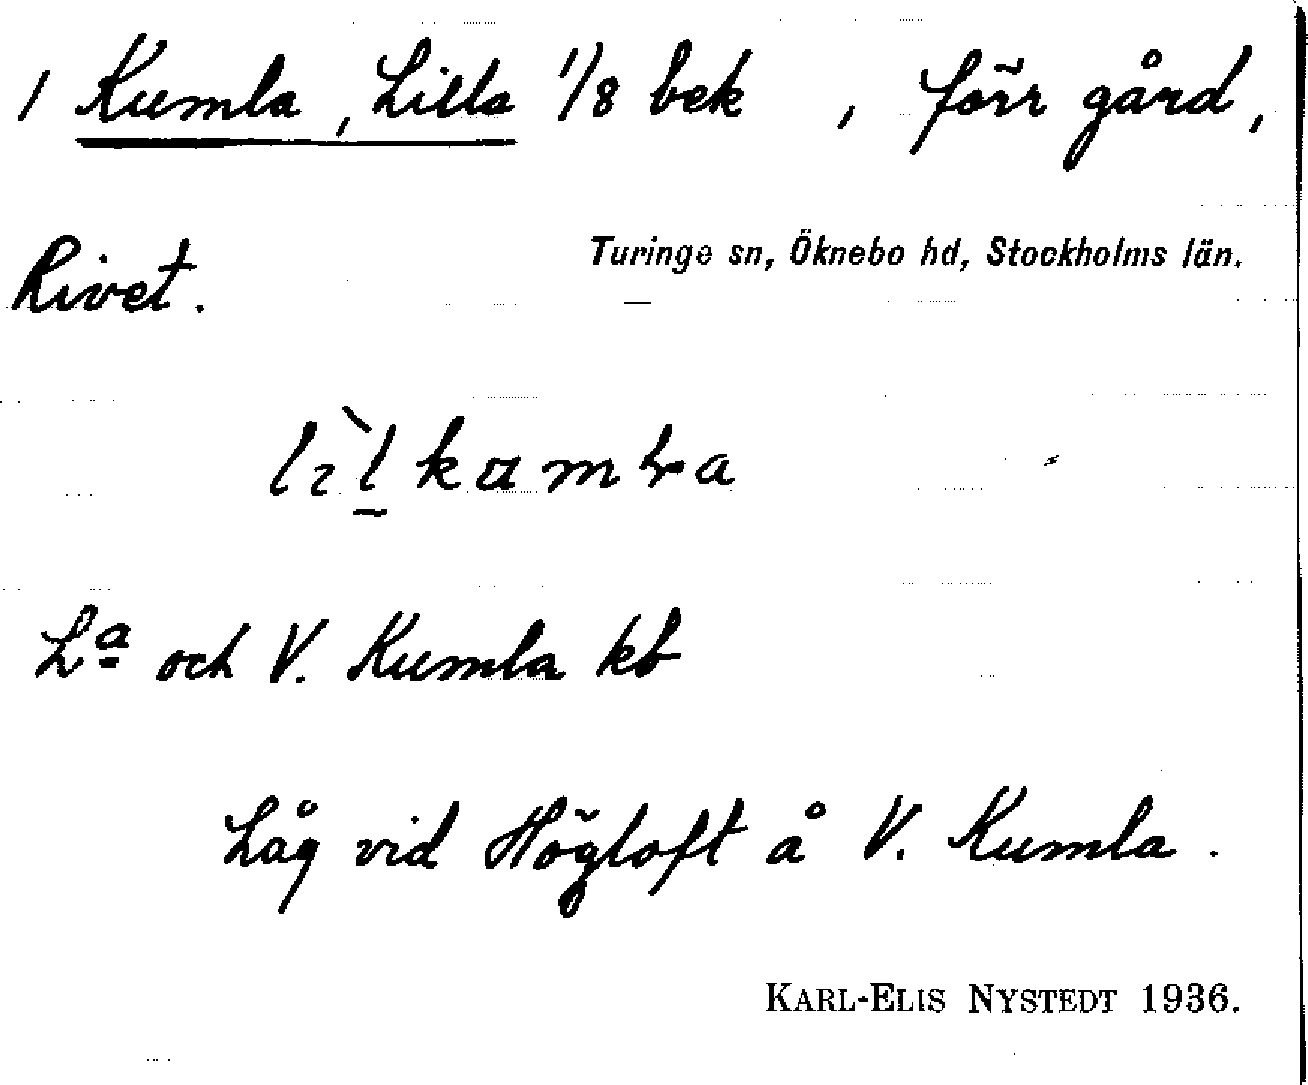 1 Kumla, Lilla 1/8 bek , förr gård,
Rivet.
Turinge sn, Öknebo hd, Stockholms län.
Lª och V. Kumla kb
Låg vid Högloft å V. Kumla.
KARL-ELIS NYSTEDT 1936.